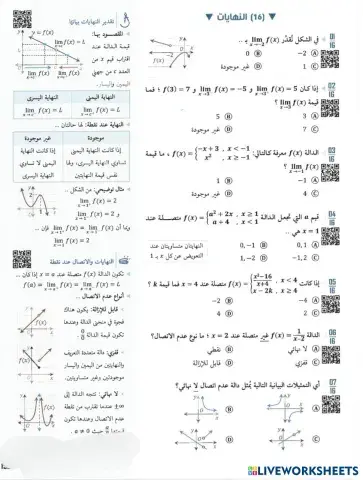 ▼ (16) النهايات ▼
01
16
في الشكل تُقدّر lim f(x) بـ ..
x→−2
A −2
B 0
C 1
D غير موجودة
02
16
إذا كان lim f(x) = 5 و lim f(x) = −5 و f(3) = 7 ؛ فما
قيمة lim f(x) ؟
x→3
A 3
B 5
C 7
D غير موجودة
03
16
الدالة f(x) معرفة كالتالي: f(x) = {−x + 3 , x < −1
x² , x ≥ −1 ، ما قيمة
lim f(x) ؟
x→−1
A −1
B 1
C 4
D غير موجودة
04
16
قيم a التي تجعل الدالة f(x) = {a² + 2x , x ≥ 1
a + 4 , x < 1 متصلة عند
x = 1 هي ..
A 0, 1
B 0, −1
C −1, 2
D 1, −2
النهايتان متساويتان عند
05
16
إذا كانت f(x) = {x²−16
x+4 , x < 4
x − 2k , x ≥ 4 متصلة عند x = 4 فما قيمة k ؟
A −4
B −2
C 2
D 4
06
16
الدالة f(x) = 1
x−2 غير متصلة عند x = 2 ؛ ما نوع عدم الاتصال؟
A لا نهائي
B نقطي
C قفزي
D قابل للإزالة
07
16
أي التمثيلات البيانية التالية يُمثل دالة عدم اتصال لا نهائي؟
A
B
C
D
تقدير النهايات بيانيًا
المقصود بها:
قيمة الدالة عند
اقتراب قيم x من
العدد c من جهتي
اليمين واليسار.
y = f(x)
lim f(x) = L
النهاية اليمنى
النهاية اليسرى
lim f(x) = L
lim f(x) = L
النهاية عند نقطة: لها حالتان ..
موجودة
غير موجودة
إذا كانت النهاية اليمنى
تساوي النهاية اليسرى، ولها
نفس قيمة النهايتين
إذا كانت النهاية
اليمنى لا تساوي
النهاية اليسرى
مثال توضيحي: من الشكل ..
lim f(x) = 2
lim f(x) = 2 و
lim f(x) = 2
النهايات والاتصال عند نقطة
تكون الدالة f(x) متصلة عند x = a إذا كان ..
أنواع عدم الاتصال ..
قابل للإزالة: يكون هناك
فجوة في منحنى الدالة وعندها
تكون قيمة الدالة 0
0
قفزي: دالة متعددة التعريف
والنهايتين من اليمين واليسار
موجودتين وغير متساويتين.
لا نهائي: تتجه الدالة إلى
±∞ عندما نقترب من نقطة
عدم الاتصال وعندها تكون
حيث a ≠ 0
LIVEWORKSHEETS